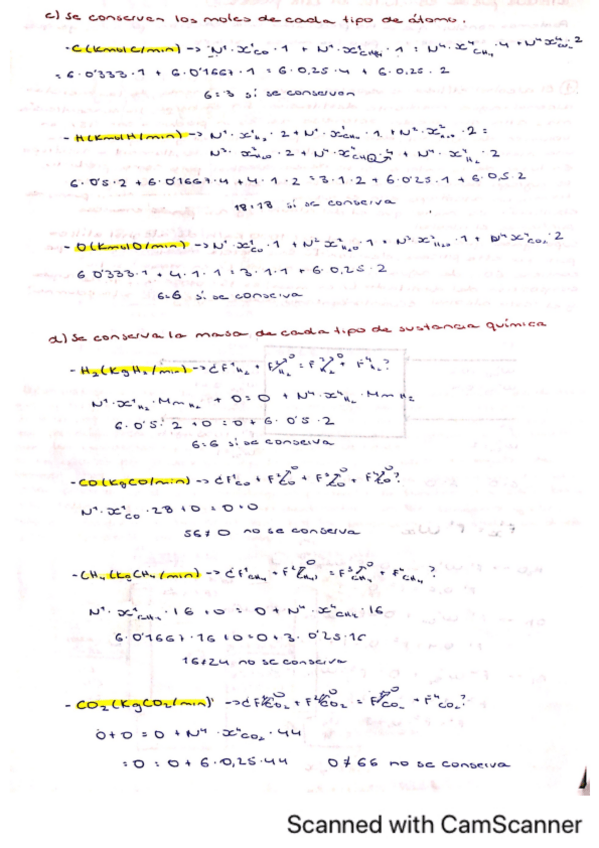 c) Se conserven los moles de cada tipo de átomo.
- C(Kmol C/min) -> N¹·x¹co·1 + N¹·x¹CH4·1 = N⁴·x⁴CH4·4 + N⁴x⁴co2·2
= 6·0'333·1 + 6·0'1667·1 = 6·0,25·4 + 6·0,25·2
6=3 sí se conserven
- H(KmolH/min) -> N¹·x¹H2·2 + N¹·x¹CH4·1 + N²·x²H2O·2 =
N³·x³H2O·2 + N⁴·x⁴CH4·4 + N⁴·x⁴H2·2
6·0'5·2 + 6·0'1667·4 + 4·1·2 = 3·1·2 + 6·0'25·1 + 6·0,5·2
18=18 sí se conserva
- O(KmolO/min) -> N¹·x¹co·1 + N²x²H2O·1 = N³·x³H2O·1 + N⁴x⁴co2·2
6·0'333·1 + 4·1·1 = 3·1·1 + 6·0,25·2
6=6 sí se conserva
d) Se conserva la masa de cada tipo de sustancia química
- H₂(KgH₂/min) -> ¿F¹H2 + F²H2⁰ = F³H2⁰ + F⁴H2?
N¹·x¹H2·MmH2 + 0 = 0 + N⁴·x⁴H2·MmH2
6·0'5·2 + 0 = 0 + 6·0'5·2
6=6 sí se conserva
- CO(KgCO/min) -> ¿F¹co + F²co⁰ = F³co⁰ + F⁴co⁰?
N¹·x¹co·28 + 0 = 0 + 0
56≠0 no se conserva
- CH₄(KgCH₄/min) -> ¿F¹CH4 + F²CH4⁰ = F³CH4⁰ + F⁴CH4?
N¹·x¹CH4·16 + 0 = 0 + N⁴·x⁴CH4·16
6·0'1667·16 + 0 = 0 + 3·0'25·16
16≠24 no se conserva
- CO₂(KgCO₂/min) -> ¿F¹CO2⁰ + F²CO2⁰ = F³CO2⁰ + F⁴CO2?
0+0=0+N⁴·x⁴co2·44
=0=0+6·0,25·44 0≠66 no se conserva
Scanned with CamScanner